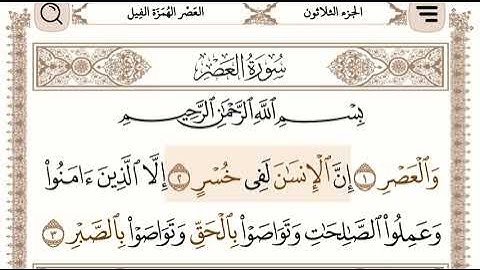 الجزء الثلاثون
العَصْر الهُمَزَة الفِيل
سُورَةُ العَصْرِ
بِسْمِ اللَّهِ الرَّحْمَٰنِ الرَّحِيمِ
وَالْعَصْرِ ١ إِنَّ الْإِنسَانَ لَفِي خُسْرٍ ٢ إِلَّا الَّذِينَ ءَامَنُوا
وَعَمِلُوا الصَّالِحَاتِ وَتَوَاصَوْا بِالْحَقِّ وَتَوَاصَوْا بِالصَّبْرِ ٣